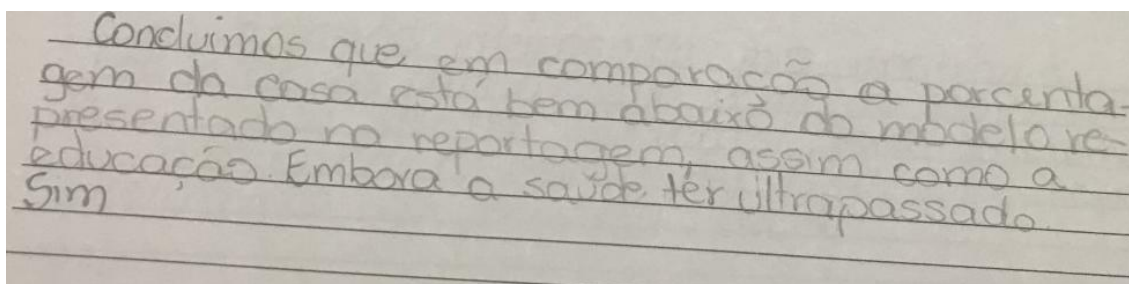 Concluimos que em comparação a porcenta-
gem da casa está bem abaixo do modelo re-
presentado no reportagem, assim como a
educação. Embora a saúde ter ultrapassado.
Sim